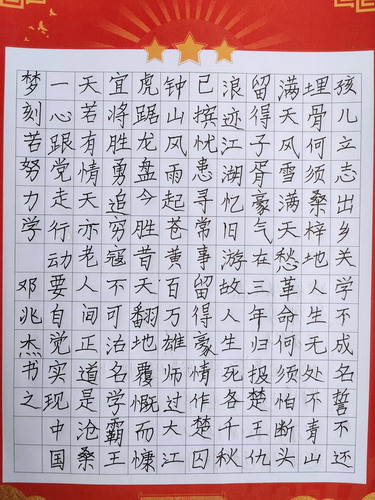 孩儿立志出乡关学不成名誓不还
埋骨何须桑梓地人生无处不青山
满天风雪满天愁革命何须怕断头
留得子胥豪气在三年归报楚王仇
浪迹江湖忆旧游故人生死各千秋
已摈忧患寻常事留得豪情作楚囚
钟山风雨起苍黄百万雄师过大江
虎踞龙盘今胜昔天翻地覆慨而慷
宜将胜勇追穷寇不可治名学霸王
天若有情天亦老人间正道是沧桑
一心跟党走行动要自觉实现中国
梦刻苦努力学 邓兆杰书之